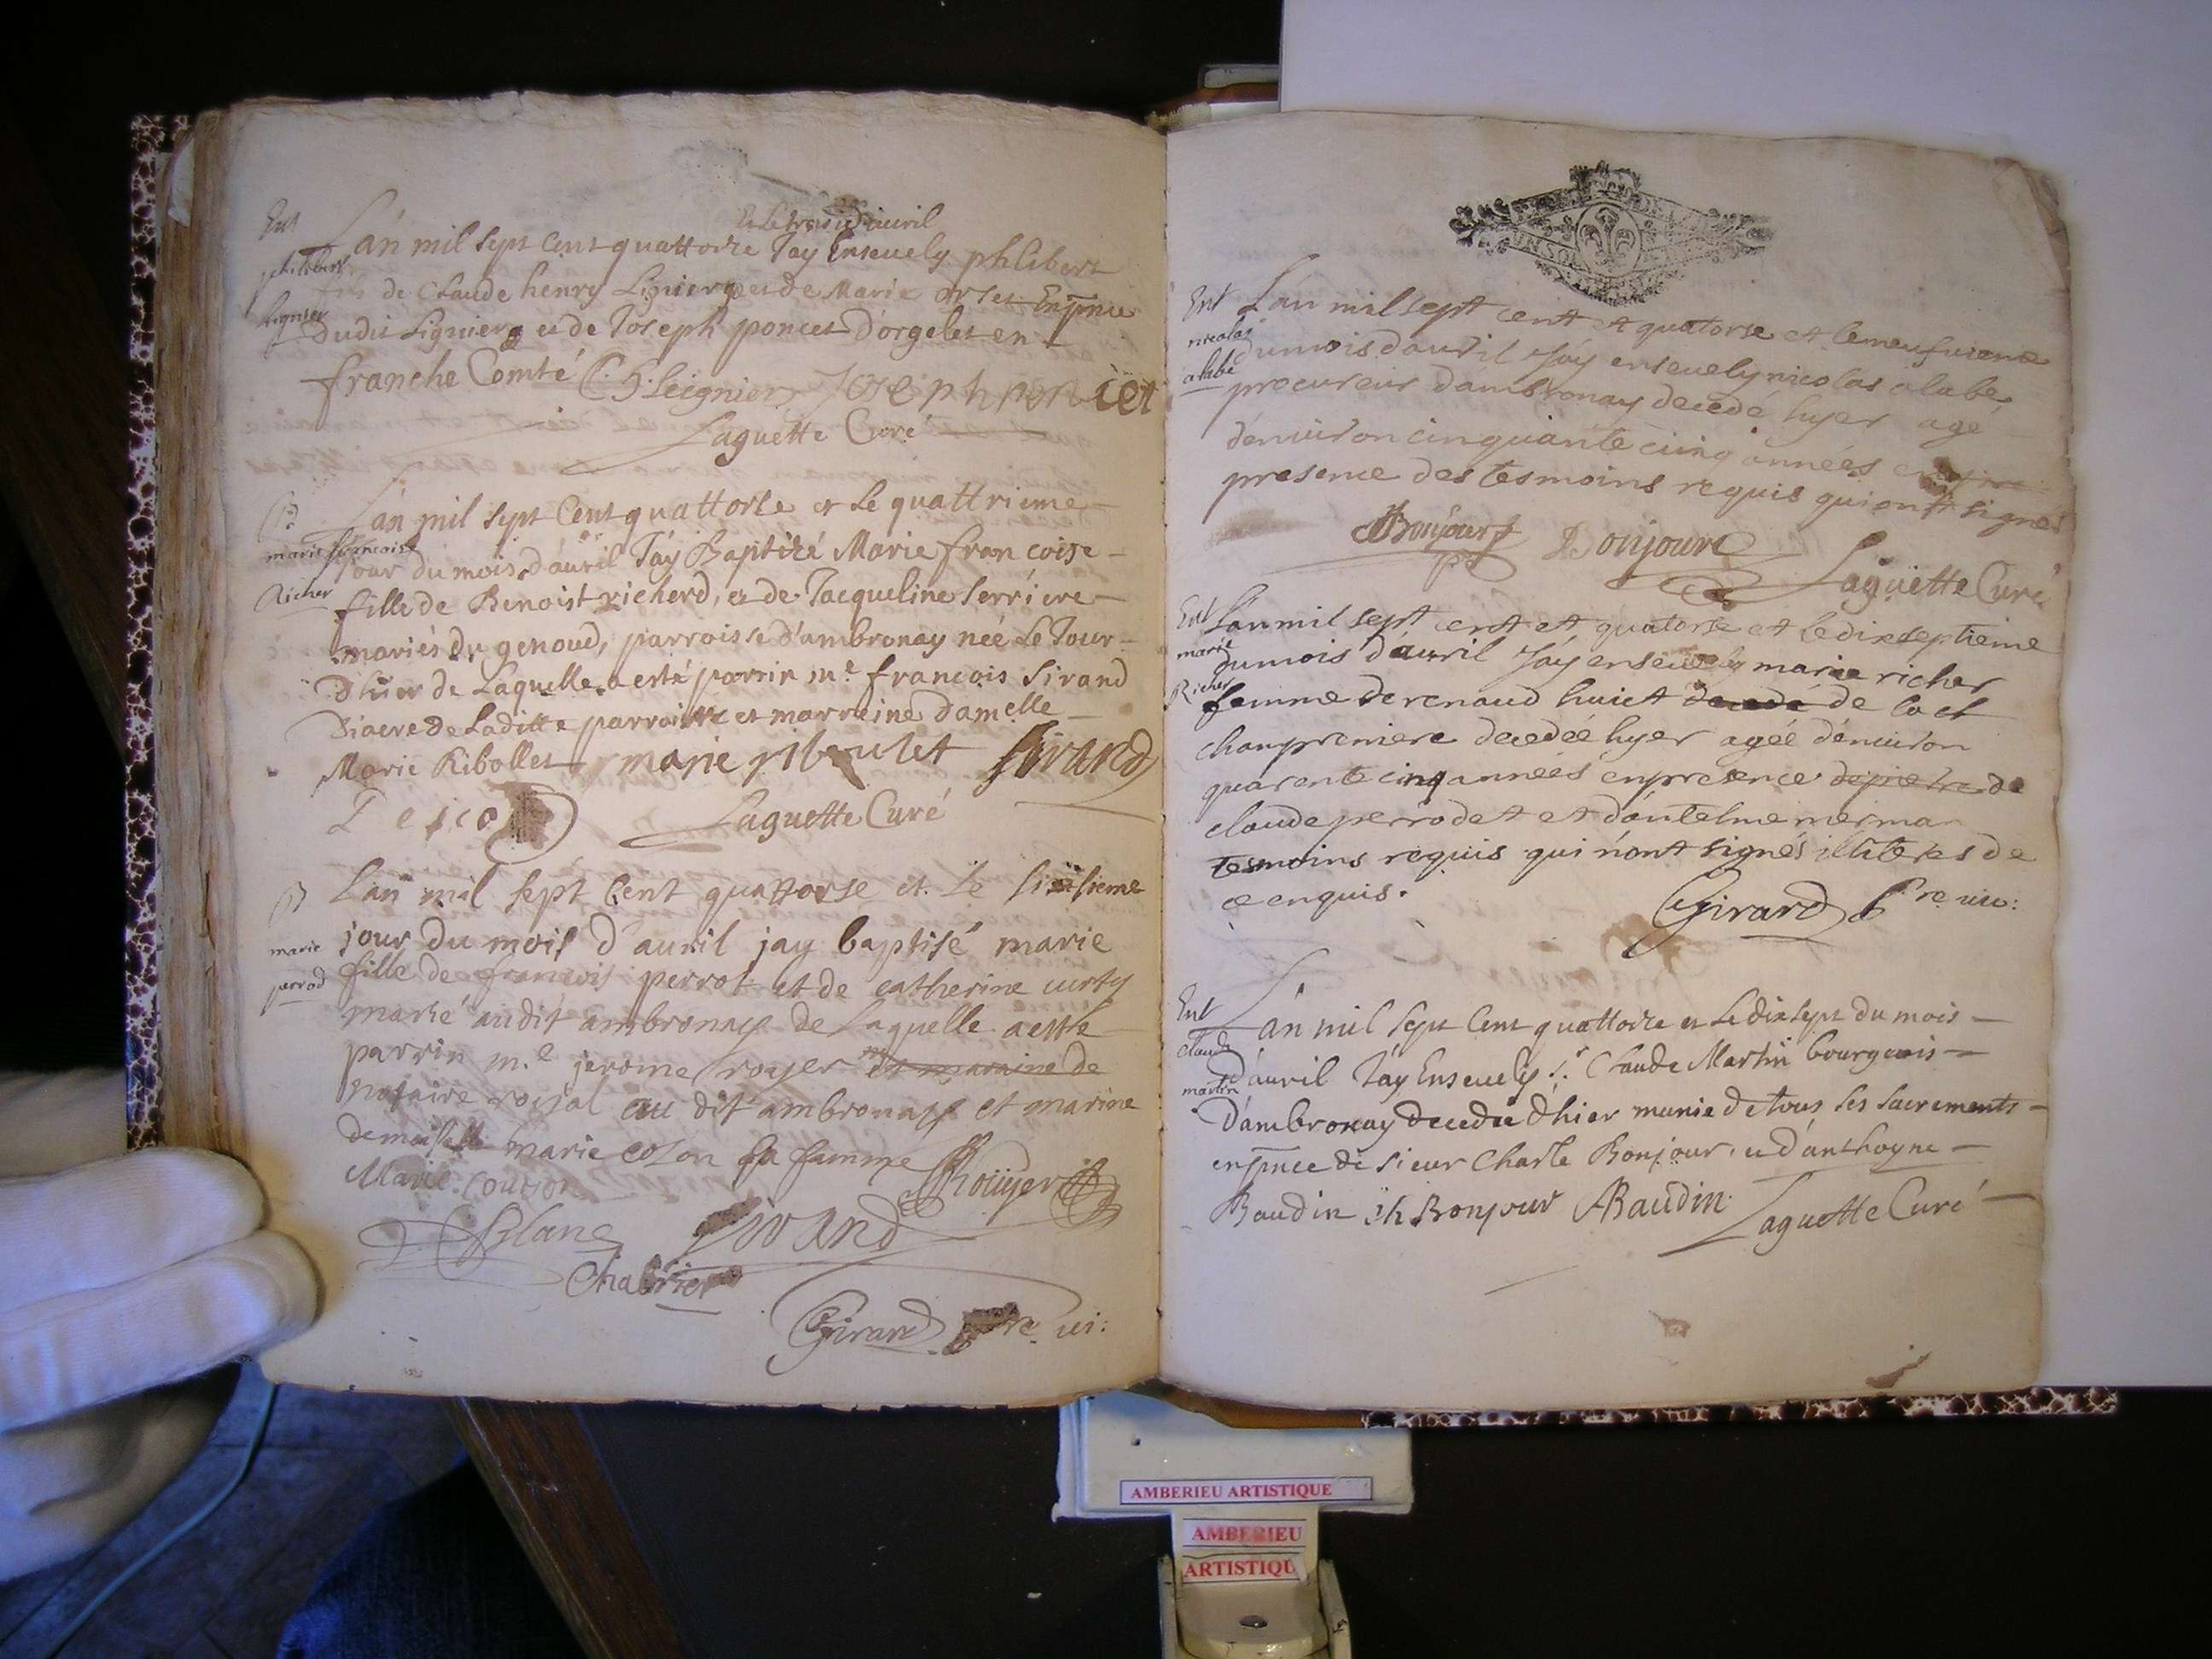 Ent
philibert
Lignier
et le trois d'auril
Lan mil sept Cent quattorze Jay Enseuely phlibert
fils de Claude henry Lignier et de Marie orset Enpnce
dudit Lignier et de Joseph poncet d'orgelet en
franche Comté C. h. Leignier Joseph poncet
Laguette Curé
B
marie francoise
Richer
Lan mil sept Cent quattorse et le quattrieme
Jour du mois d'auril Jáy Baptizé Marie francoise
fille de Benoist richerd, et de Jacqueline serriere
mariés du genoud, parroisse d'ambronay née Le Jour
d'hier de Laquelle a esté parrin mr francois sirand
Diacre de Laditte parroisse et marraine damelle
Marie Ribollet marie riboulet Sirand
Laguette Curé
B
marie
perrod
Lan mil sept Cent quattorse et le sixsieme
jour du mois d'auril jay baptisé marie
fille de francois perrot et de catherine curty
marié audit ambronay de laquelle a esté
parrin m.e jerome royer et maraine de
notaire roïal au dit ambronay et marine
demoiselle marie colon sa famme Roüyer
Marie Coulon
Blanc Sirand
Chabrier
Girard pre ui:
UN SOL
Ent
nicolas
alabe
Lan mil sept cent et quatorse et le neufuieme
du mois dauril Jáy enseuely nicolas alabe
procureur dambronay decedé hyer agé
démuiron cinquante cinq années en
presence des tesmoins requis qui ont signés
Bonjour Bonjour
Laguette Curé
Ent
marie
Richer
Lan mil sept cent et quatorse et le dixseptieme
du mois d'auril Jáy enseuely marie richer
femme de renaud huict decedé de la cl
champremiere decedée hyer agée démuiron
quarente cinq années en presence de pierre de
claude perrodet et d'antelme merma
tesmoins requis qui n'ont signés illiteres de
ce enquis.
Girard pre uic:
Ent
Claude
martin
Lan mil sept Cent quattorze et Le dix sept du mois
d'auril Jáy Enseuely s.r Claude Martin bourgeois
D'ambronay decedée d'hier munie de tous ses sacrements
enpnce de sieur Charle Bonjour, et d'anthoyne
Baudin Ch Bonjour ABaudin Laguette Curé
AMBERIEU ARTISTIQUE
AMBERIEU
ARTISTIQU